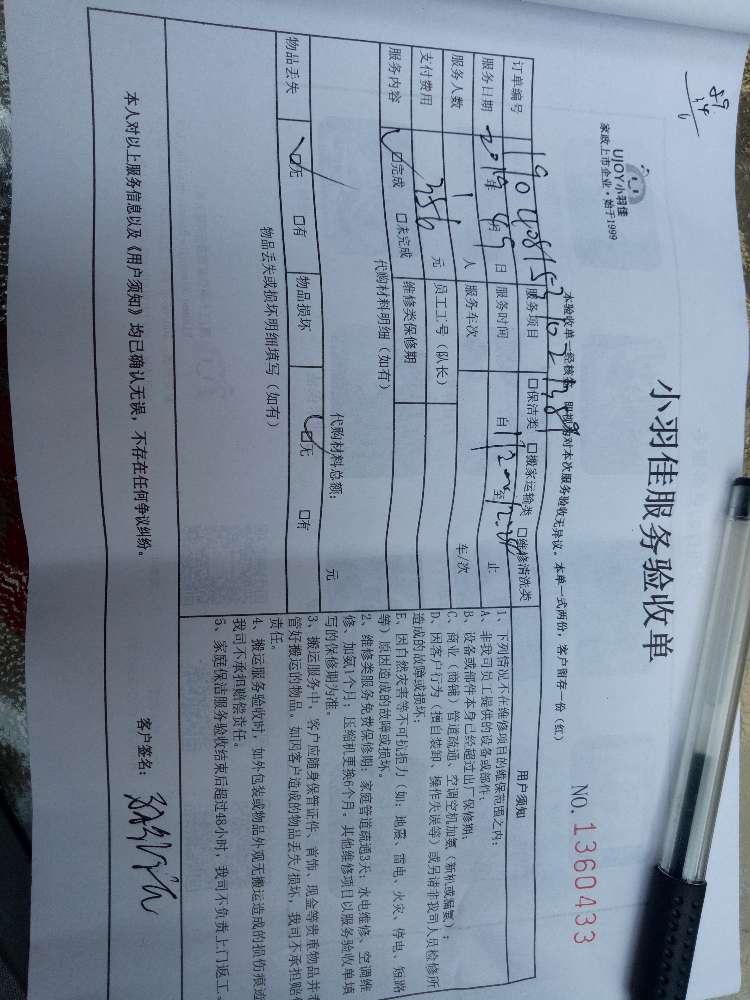 UJOY小羽佳
家政上市企业·始于1999
小羽佳服务验收单
NO. 1360433
本验收单一经核签，即视为对本次服务验收无异议。本单一式两份，客户留存一份（红）
订单编号
服务项目 □保洁类 □搬家运输类 □维修清洗类
服务日期 2019年 月 日 服务时间 自 至 止
服务人数 1 人 服务车次 车/次
支付费用 356 元 员工工号（队长）
服务内容 □完成 □未完成 维修类保修期
代购材料明细（如有）
代购材料总额： 元
物品丢失 □无 □有 物品损坏 □无 □有
物品丢失或损坏明细填写（如有）
用户须知
1、下列情况不在维修项目的维保范围之内：
A、非我司员工提供的设备或部件；
B、设备或部件本身已经超过出厂保修期；
C、商业（商铺）管道疏通、空调空机加氨（新机或漏氨）；
D、因客户行为（擅自装卸、操作失误等）或另请非我司人员检修所
造成的故障或损坏；
E、因自然灾害等不可抗力（如：地震、雷电、火灾、停电、短路
等）原因造成的故障或损坏。
2、维修类服务免费保修期：家庭管道疏通3天；水电维修、空调维
修、加氨1个月；压缩机更换6个月。其他维修项目以服务验收单填
写的保修期为准。
3、搬运服务中，客户应随身保管证件、首饰、现金等贵重物品并看
管好搬运的物品。如因客户造成的物品丢失/损坏，我司不承担赔偿
责任。
4、搬运服务验收时，如外包装或物品外观无搬运造成的损伤痕迹
我司不承担赔偿责任。
5、家庭保洁服务验收结束后超过48小时，我司不负责上门返工。
本人对以上服务信息以及《用户须知》均已确认无误，不存在任何争议纠纷。
客户签名：